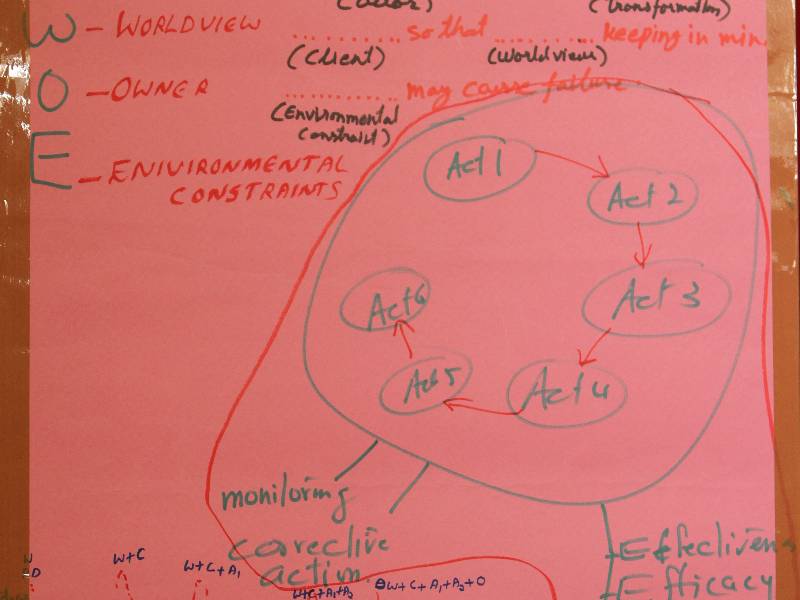 (Transformation)
W - WORLDVIEW .......... so that .......... keeping in min
(Client) (Worldview)
O - OWNER .......... may cause failure
(Environmental
Constraint)
E - ENIVIRONMENTAL
CONSTRAINTS
Act 1
Act 2
Act 3
Act 4
Act 5
Act 6
monitoring
corrective
action
Effectiveness
Efficacy
W+C
W+C+A1
W+C+A1+A2
W+C+A1+A2+O